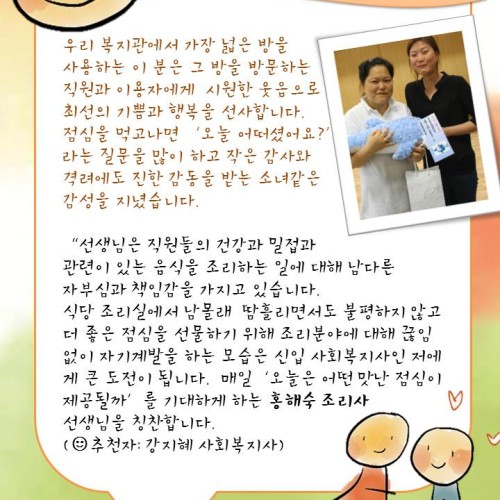 우리 복지관에서 가장 넓은 방을
사용하는 이 분은 그 방을 방문하는
직원과 이용자에게 시원한 웃음으로
최선의 기쁨과 행복을 선사합니다.
점심을 먹고나면 ‘오늘 어떠셨어요?’
라는 질문을 많이 하고 작은 감사와
격려에도 진한 감동을 받는 소녀같은
감성을 지녔습니다.
“선생님은 직원들의 건강과 밀접과
관련이 있는 음식을 조리하는 일에 대해 남다른
자부심과 책임감을 가지고 있습니다.
식당 조리실에서 남몰래 땀흘리면서도 불평하지 않고
더 좋은 점심을 선물하기 위해 조리분야에 대해 끊임
없이 자기계발을 하는 모습은 신입 사회복지사인 저에
게 큰 도전이 됩니다. 매일 ‘오늘은 어떤 맛난 점심이
제공될까’ 를 기대하게 하는 홍해숙 조리사
선생님을 칭찬합니다.
(☺추천자: 강지혜 사회복지사)